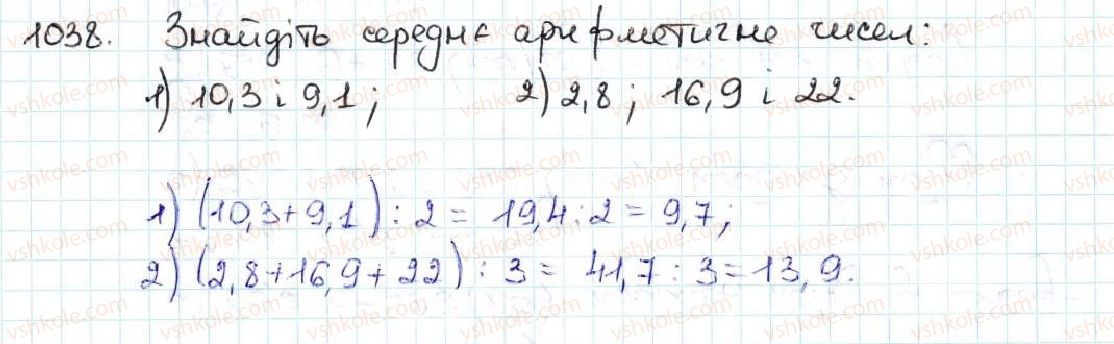 1038. Знайдіть середнє арифметичне чисел:
1) 10,3 і 9,1; 2) 2,8; 16,9 і 22.
1) (10,3+9,1) : 2 = 19,4 : 2 = 9,7;
2) (2,8+16,9+22) : 3 = 41,7 : 3 = 13,9.